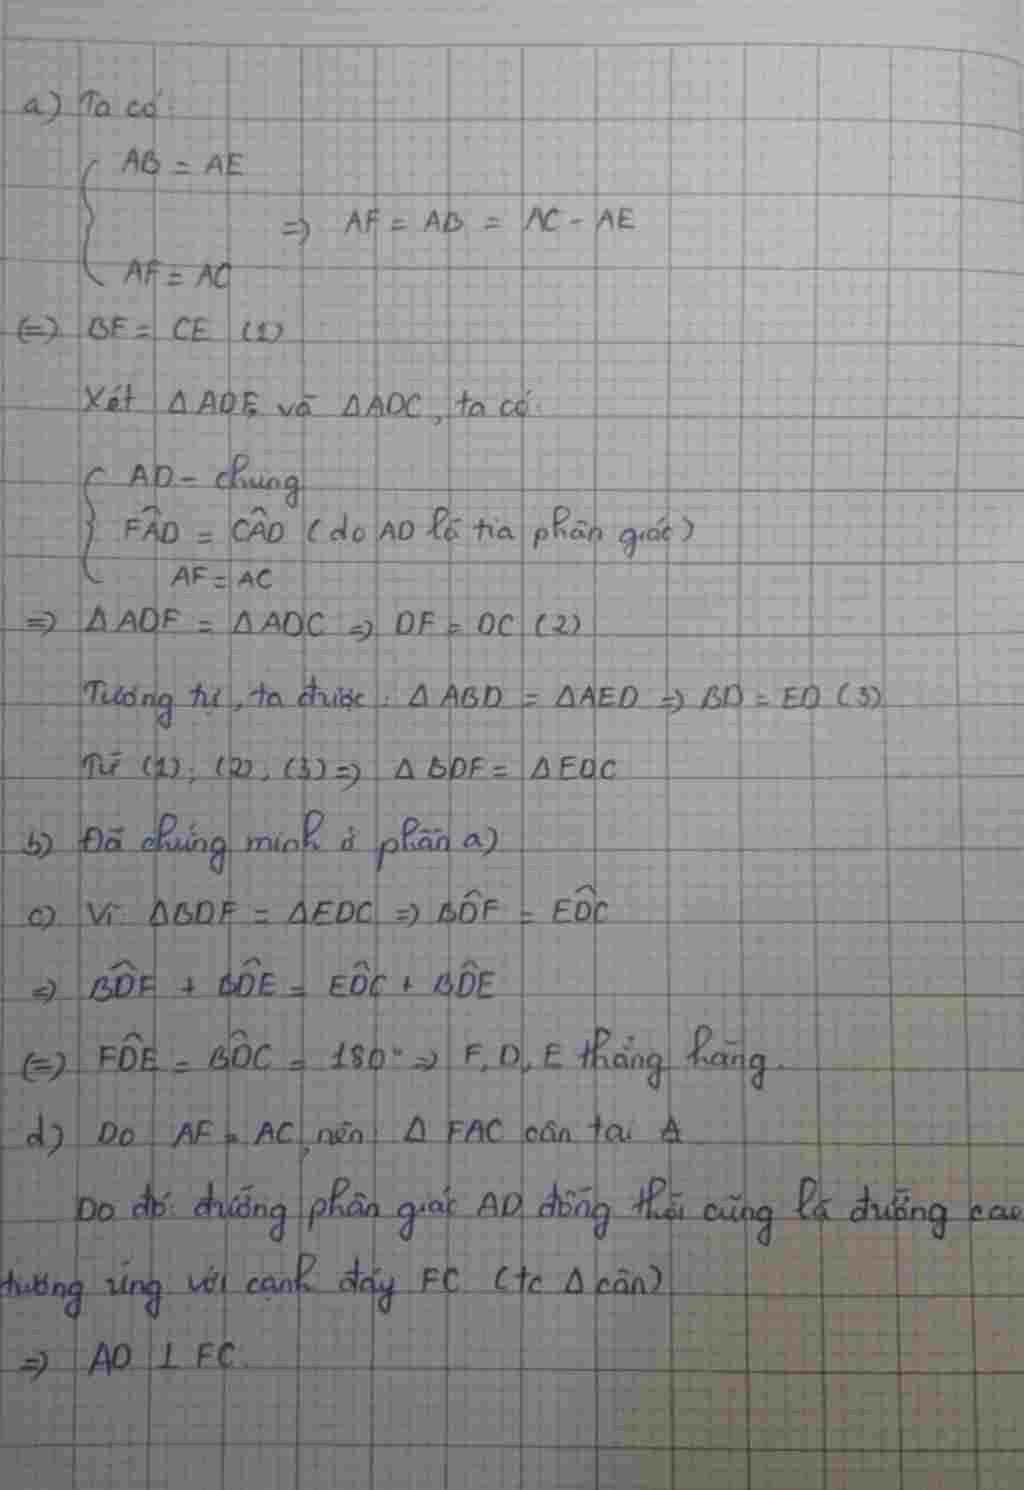 a) Ta có:
AB = AE
=> AF = AB = AC - AE
AF = AC
(=) BF = CE (1)
Xét ΔADF và ΔADC, ta có:
AD - chung
FÂD = CÂD (do AD là tia phân giác)
AF = AC
=> ΔADF = ΔADC => DF = DC (2)
Tương tự, ta được: ΔABD = ΔAED => BD = ED (3)
Từ (1), (2), (3) => ΔBDF = ΔEDC
b) Đã chứng minh ở phần a)
c) Vì ΔBDF = ΔEDC => BD̂F = ED̂C
=> BD̂F + BD̂E = ED̂C + BD̂E
(=) FD̂E = BD̂C = 180° => F, D, E thẳng hàng.
d) Do AF = AC, nên Δ FAC cân tại A
Do đó: đường phân giác AD đồng thời cũng là đường cao
tương ứng với cạnh đáy FC (tc Δ cân)
=> AD ⊥ FC.